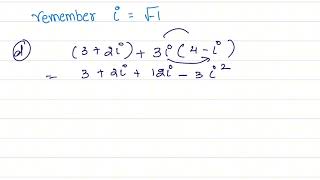 remember i = √-1
d) (3 + 2i) + 3i (4 - i)
= 3 + 2i + 12i - 3i²